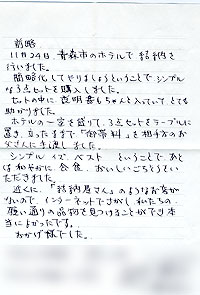 前略
11月24日、青森市のホテルで結納を
行いました。
簡略化してやりましょうということで、シンプル
な3点セットを購入しました。
セットの中に説明書もちゃんと入っていて、とても
助かりました。
ホテルの一室を借りて、3点セットをテーブルに
置き、立ったままで「御帯料」を相手方のお
父さんに手渡しました。
シンプル イズ ベスト ということで、あと
は和やかに会食、おいしいごちそうでい
ただきました。
近くに、「結納屋さん」のようなお店が
ないので、インターネットでさがし、私たちの
思い通りの品物を見つけることができ本
当によかったです。
おかげ様でした。